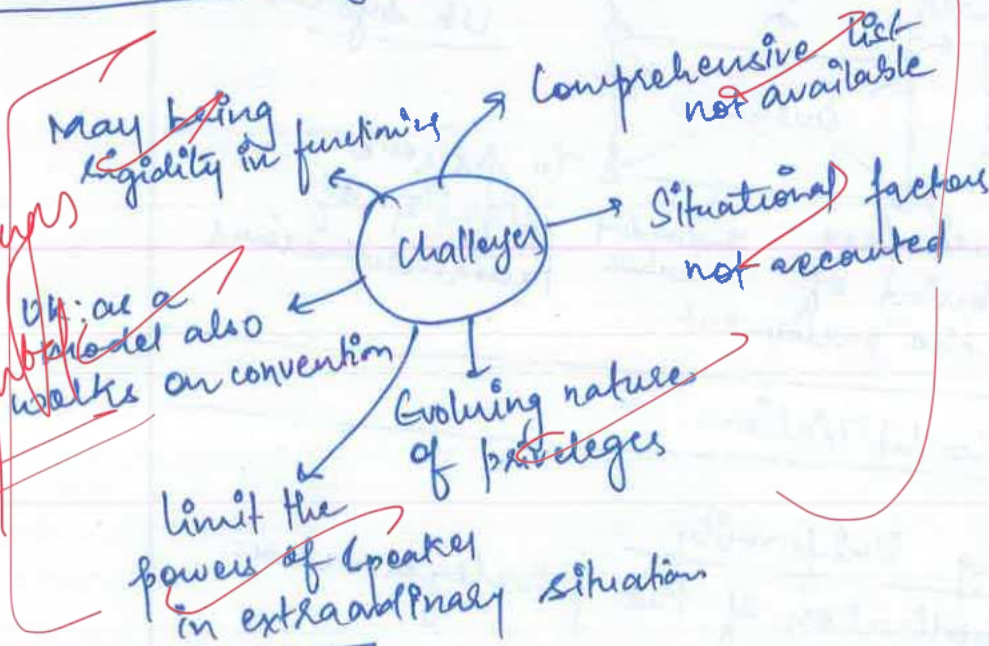 May being
rigidity in functioning
Comprehensive list
not available
Challenges
Situational factors
not accounted
UK: as a
model also
works on convention
Evolving nature
of privileges
limit the
powers of Speaker
in extraordinary situation